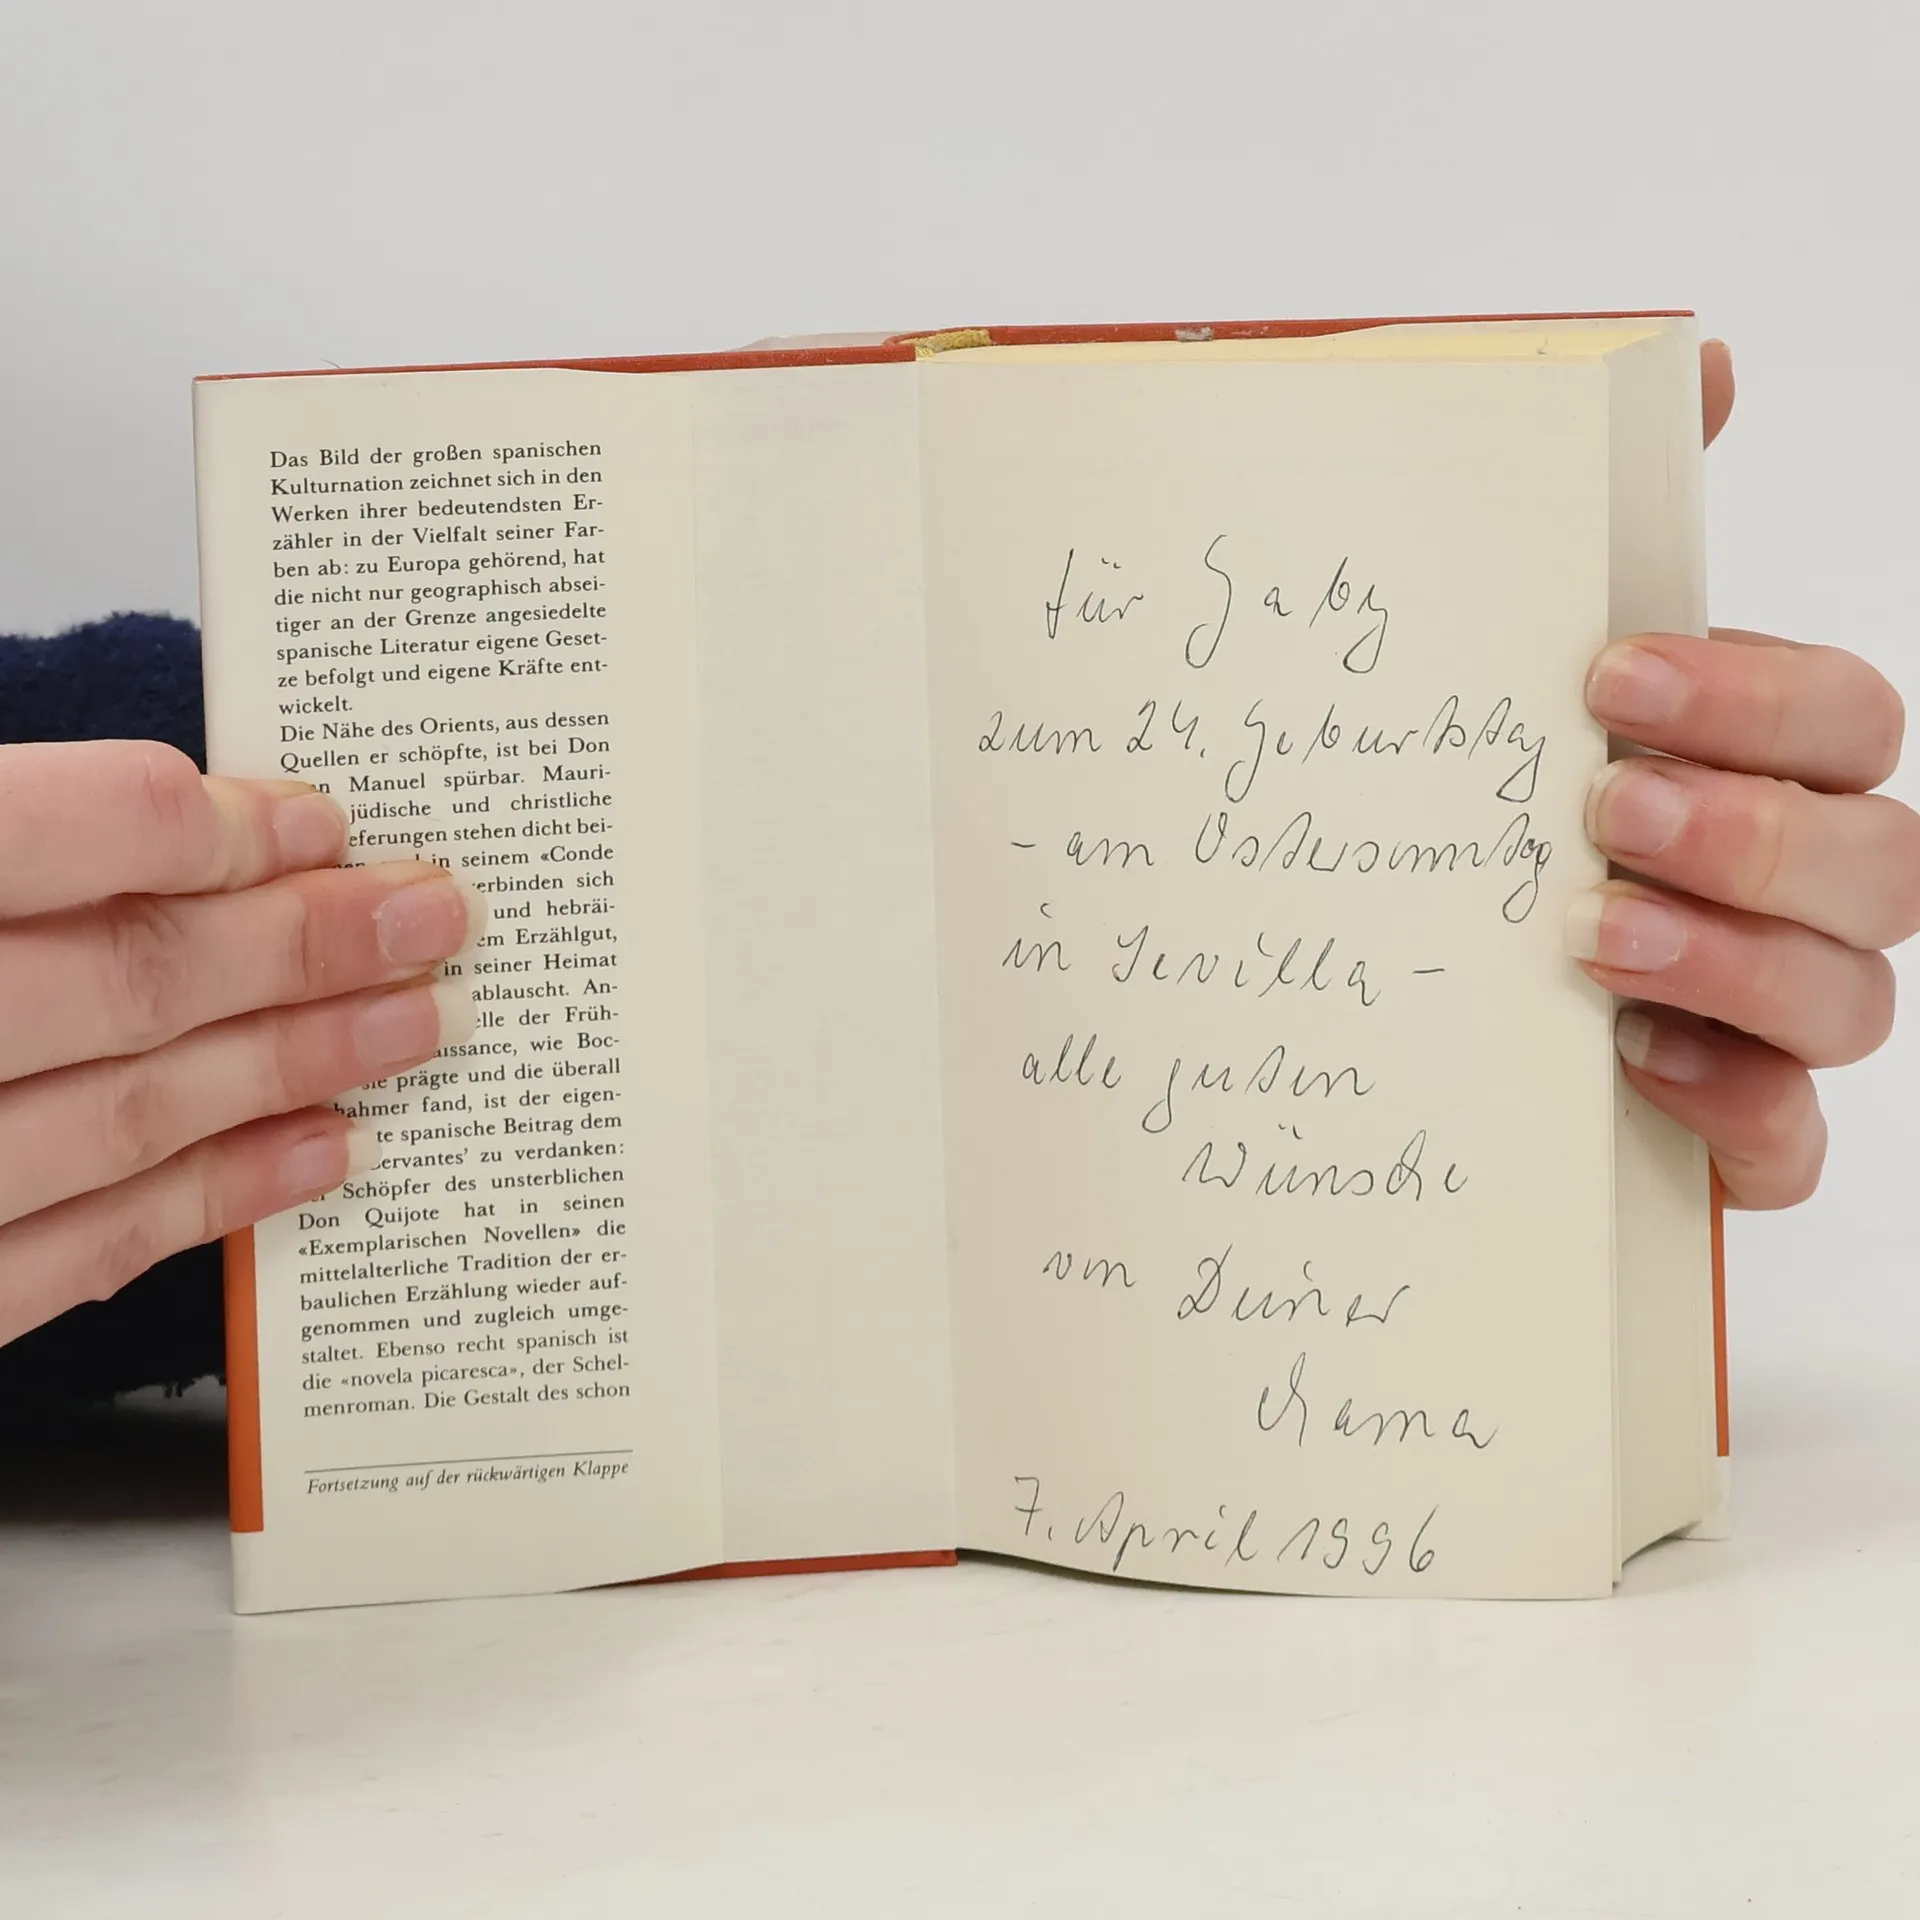 Das Bild der großen spanischen
Kulturnation zeichnet sich in den
Werken ihrer bedeutendsten Er-
zähler in der Vielfalt seiner Far-
ben ab: zu Europa gehörend, hat
die nicht nur geographisch absei-
tiger an der Grenze angesiedelte
spanische Literatur eigene Geset-
ze befolgt und eigene Kräfte ent-
wickelt.
Die Nähe des Orients, aus dessen
Quellen er schöpfte, ist bei Don
Manuel spürbar. Mauri-
jüdische und christliche
eferungen stehen dicht bei-
in seinem «Conde
verbinden sich
und hebräi-
Erzählgut,
in seiner Heimat
ablauscht. An-
der Früh-
aissance, wie Boc-
sie prägte und die überall
ahmer fand, ist der eigen-
te spanische Beitrag dem
ervantes' zu verdanken:
Schöpfer des unsterblichen
Don Quijote hat in seinen
«Exemplarischen Novellen» die
mittelalterliche Tradition der er-
baulichen Erzählung wieder auf-
genommen und zugleich umge-
staltet. Ebenso recht spanisch ist
die «novela picaresca», der Schel-
menroman. Die Gestalt des schon
Fortsetzung auf der rückwärtigen Klappe
für Gaby
zum 24. Geburtstag
- am Ostersonntag
in Sevilla -
alle guten
Wünsche
von Deiner
7. April 1996